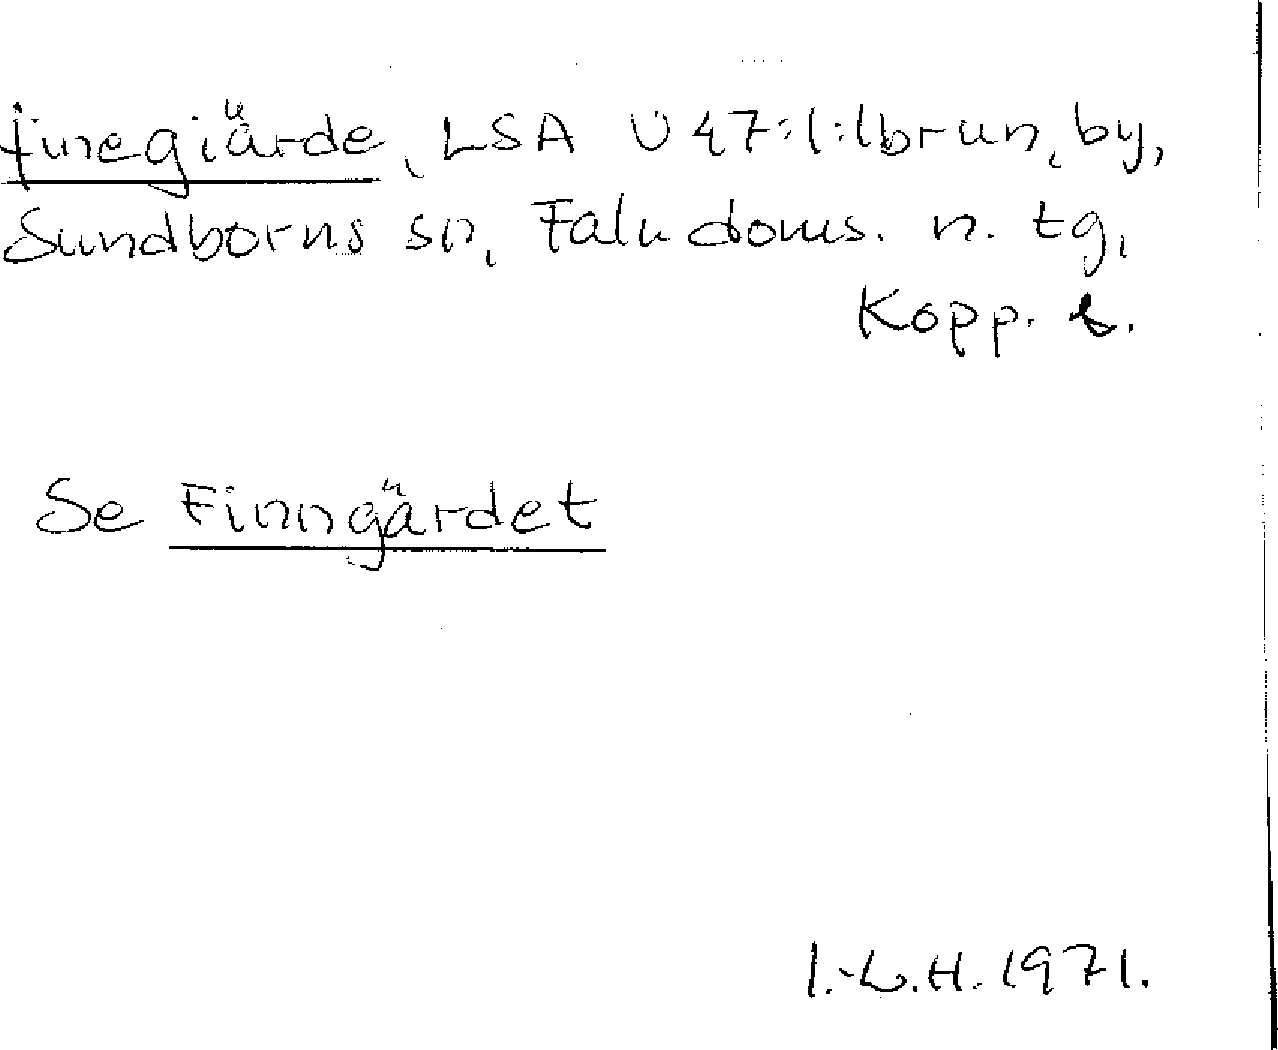 finegiärde, LSA U 47:1:1brun, by,
Sundborns sn, Falu doms. n. tg,
Kopp. l.
Se Finngärdet
I.-L.H. 1971.